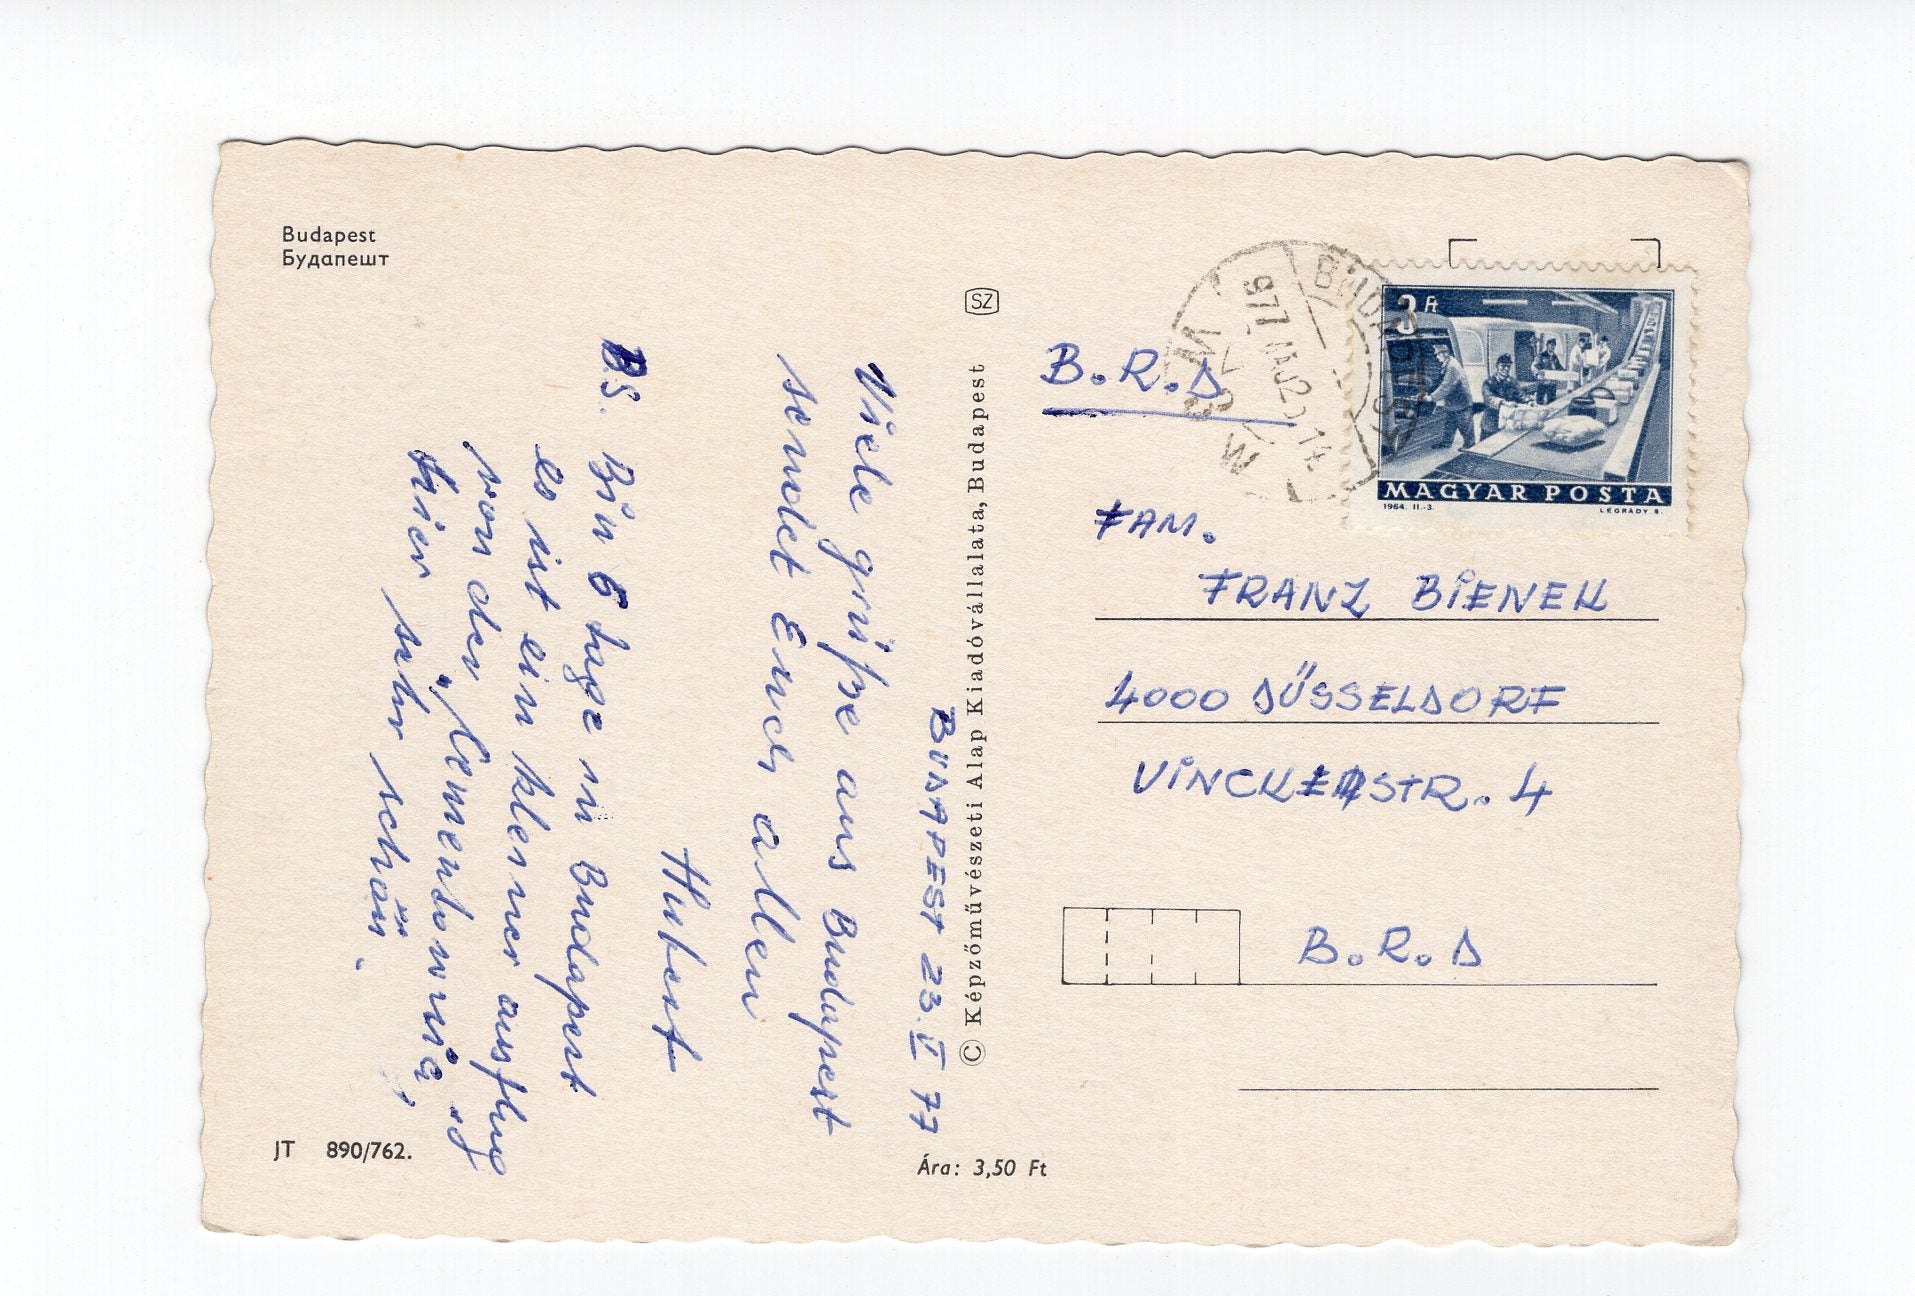 Budapest
Будапешт
SZ
BUDAPEST 23. V 77
Viele grüße aus Budapest
sendet Euch allen
Hubert
B.S. Bin 6 tage in Budapest
es ist ein kleiner ausflug
von der
hier sehr schön.
JT 890/762.
© Képzőművészeti Alap Kiadóvállalata, Budapest
Ára: 3,50 Ft
B.R.D
BUDAPEST
977
3 Ft
MAGYAR POSTA
1964. II.-3.
LÉGRÁDY S.
FAM.
FRANZ BIENEK
4000 DÜSSELDORF
VINCKESTR. 4
B.R.D